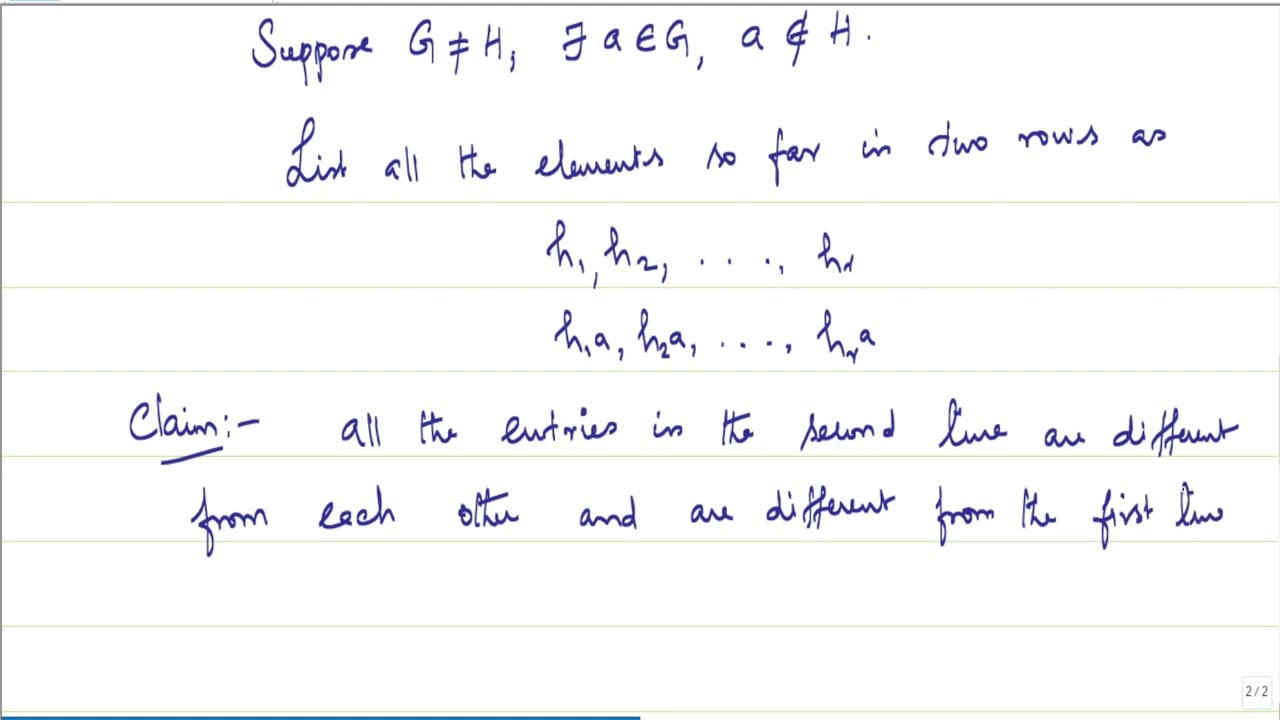 Suppose G ≠ H, ∃ a ∈ G, a ∉ H.
List all the elements so far in two rows as
h₁, h₂, . . . ., hᵣ
h₁a, h₂a, . . . ., hᵣa
Claim:- all the entries in the second line are different
from each other and are different from the first line
2/2